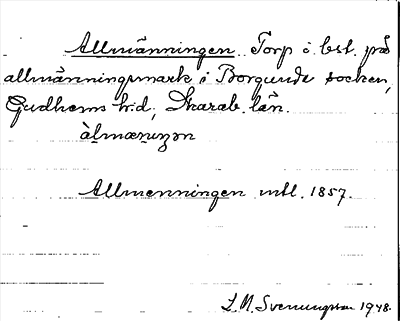 Allmänningen. Torp i bst. på
allmänningsmark i Borgunda socken,
Gudhems hd, Skarab. län.
àlmæniŋən
Allmenningen mtl. 1857.
L. M. Svenungsson 1948.